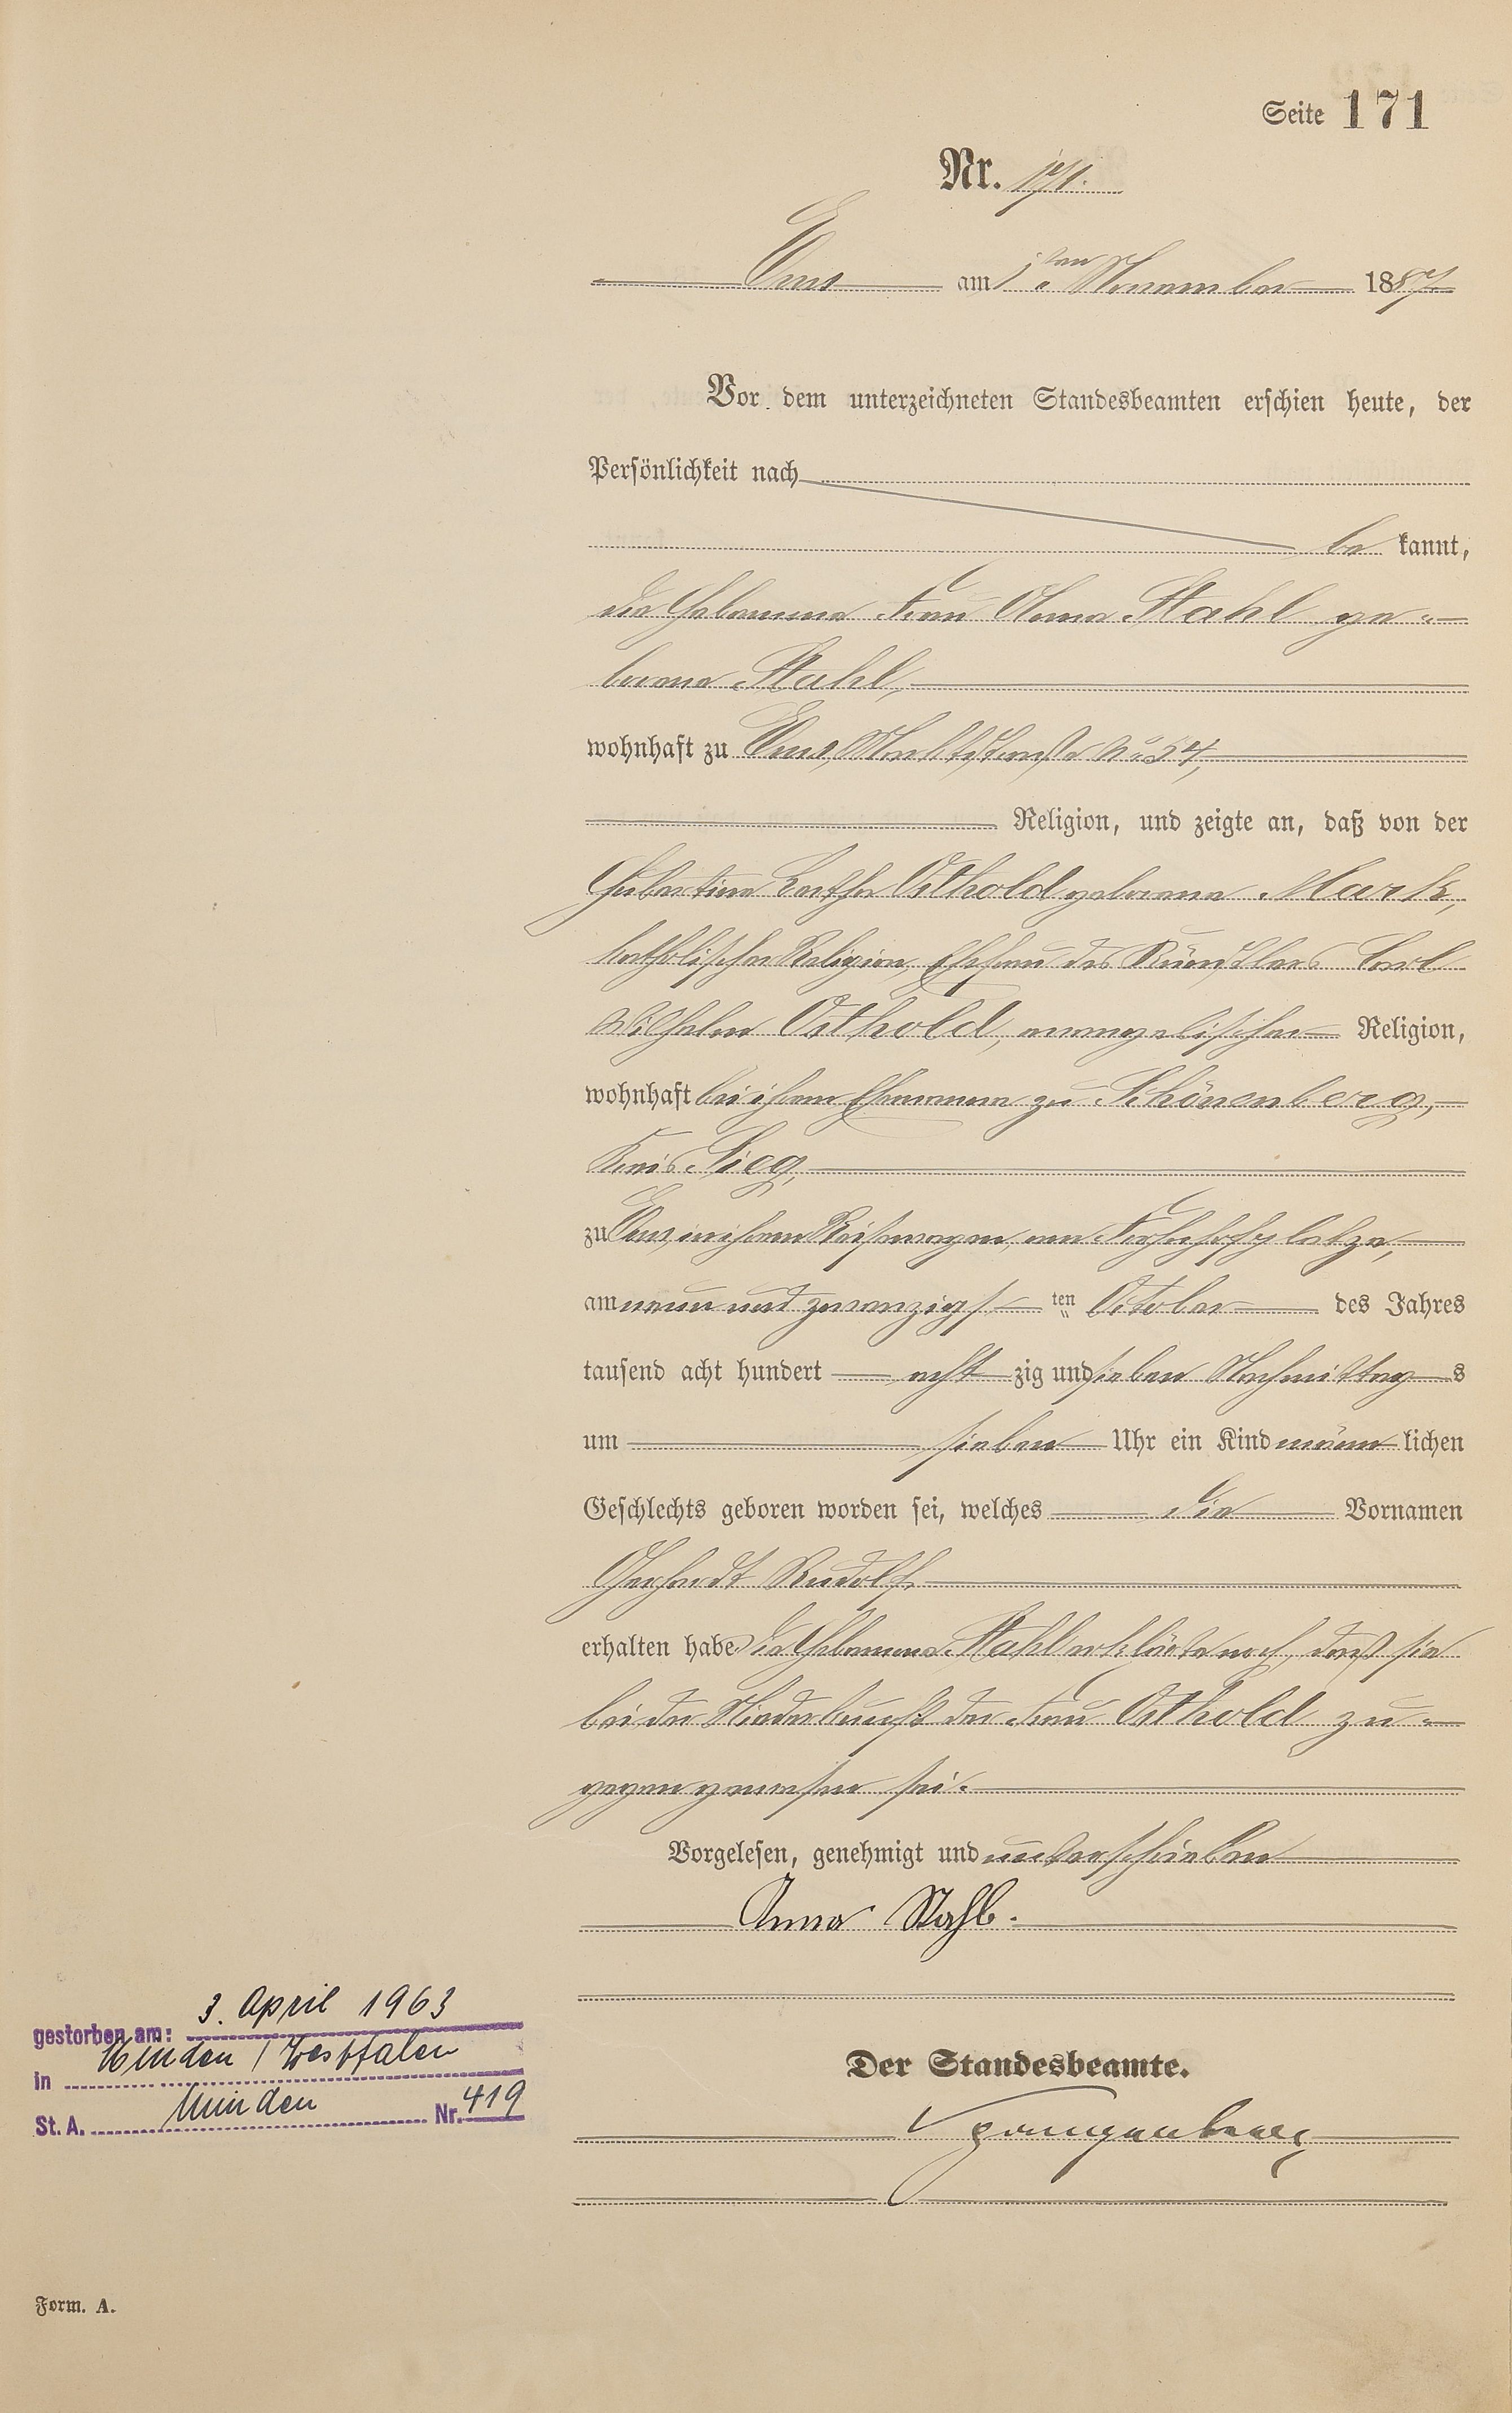 Seite 171
Nr. 171.
Ems am 1ten November 1887
Vor dem unterzeichneten Standesbeamten erschien heute, der
Persönlichkeit nach
be kannt,
die Hebamme Frau Anna Stahl ge-
borene Stahl,
wohnhaft zu Ems, Marktstraße No 54,
Religion, und zeigte an, daß von der
Hubertine Osthold geborene Mark,
katholischer Religion, Ehefrau des Künstlers Carl
Wilhelm Osthold, evangelischer Religion,
wohnhaft bei ihrem Ehemanne zu Schönenberg,
Kreis Sieg,
zu Ems, in ihrem Reisewagen, am
am neun und zwanzigs ten October des Jahres
tausend acht hundert acht zig und sieben Nachmittag s
um sieben Uhr ein Kind männ lichen
Geschlechts geboren worden sei, welches die Vornamen
Gerhardt Rudolf
erhalten habe. Die Hebamme Stahl erklärte noch, daß sie
bei der Niederkunft der Frau Osthold zu-
gegen gewesen sei.
Vorgelesen, genehmigt und unterschrieben
Anna Stahl.
Der Standesbeamte.
gestorben am: 3. April 1963
in Minden / Westfalen
St. A. Minden Nr. 419
Form. A.